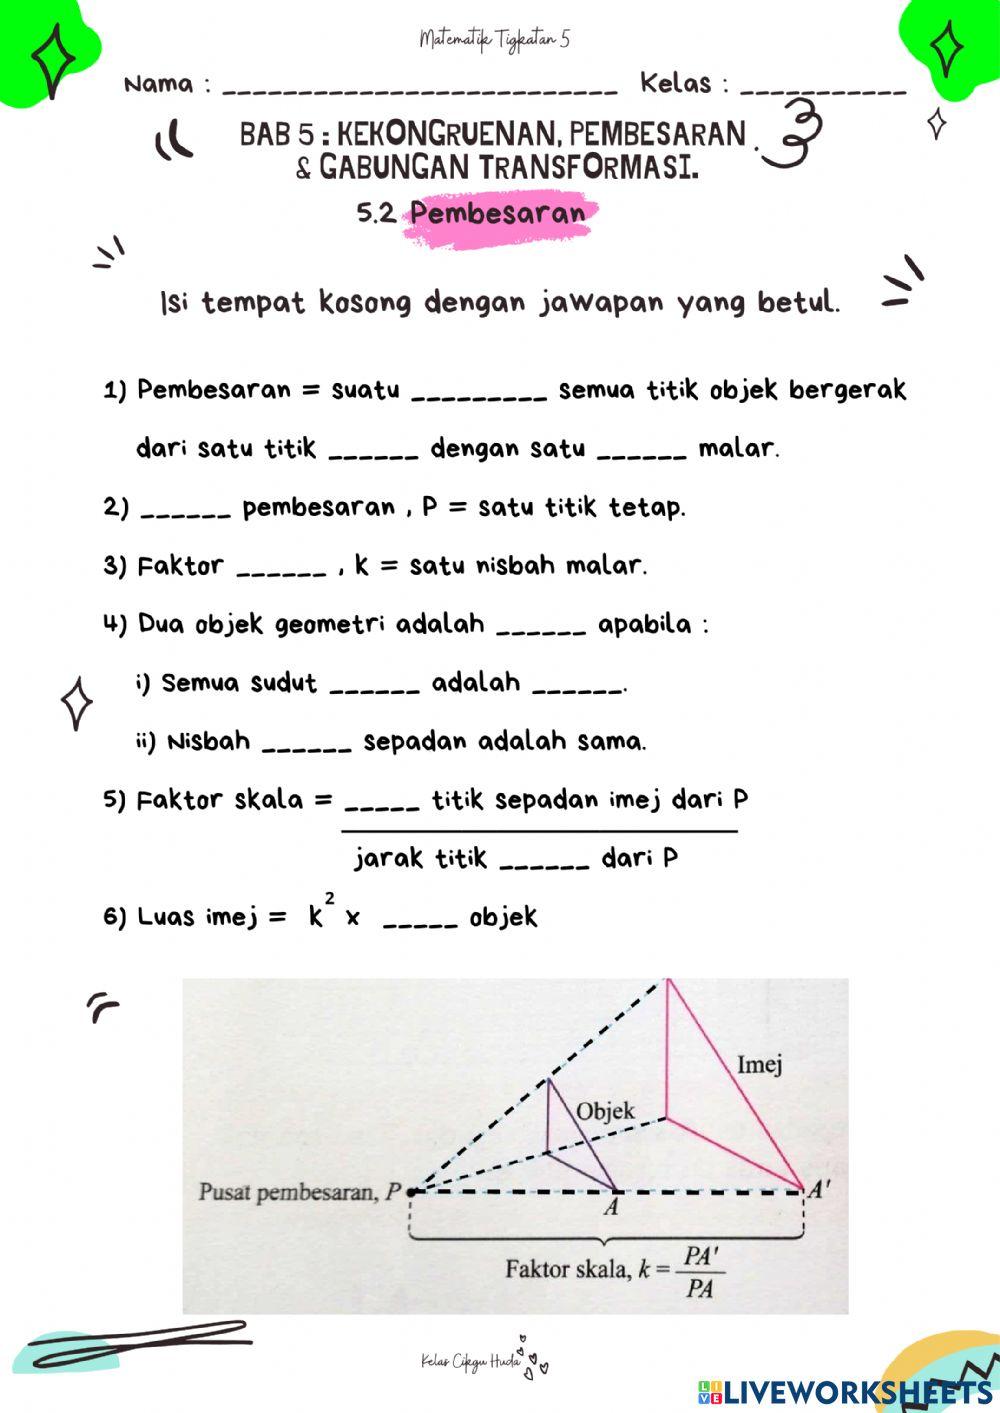 Matematik Tigkatan 5
Nama : __________________________ Kelas : ___________
BAB 5 : KEKONGRUENAN, PEMBESARAN
& GABUNGAN TRANSFORMASI.
5.2 Pembesaran
Isi tempat kosong dengan jawapan yang betul.
1) Pembesaran = suatu _________ semua titik objek bergerak
dari satu titik ______ dengan satu ______ malar.
2) ______ pembesaran , P = satu titik tetap.
3) Faktor ______ , k = satu nisbah malar.
4) Dua objek geometri adalah ______ apabila :
i) Semua sudut ______ adalah ______.
ii) Nisbah ______ sepadan adalah sama.
5) Faktor skala = _____ titik sepadan imej dari P
jarak titik ______ dari P
6) Luas imej = k² x _____ objek
Imej
Objek
Pusat pembesaran, P
A
A'
Faktor skala, k = PA'
PA
Kelas Cikgu Huda
LIVEWORKSHEETS